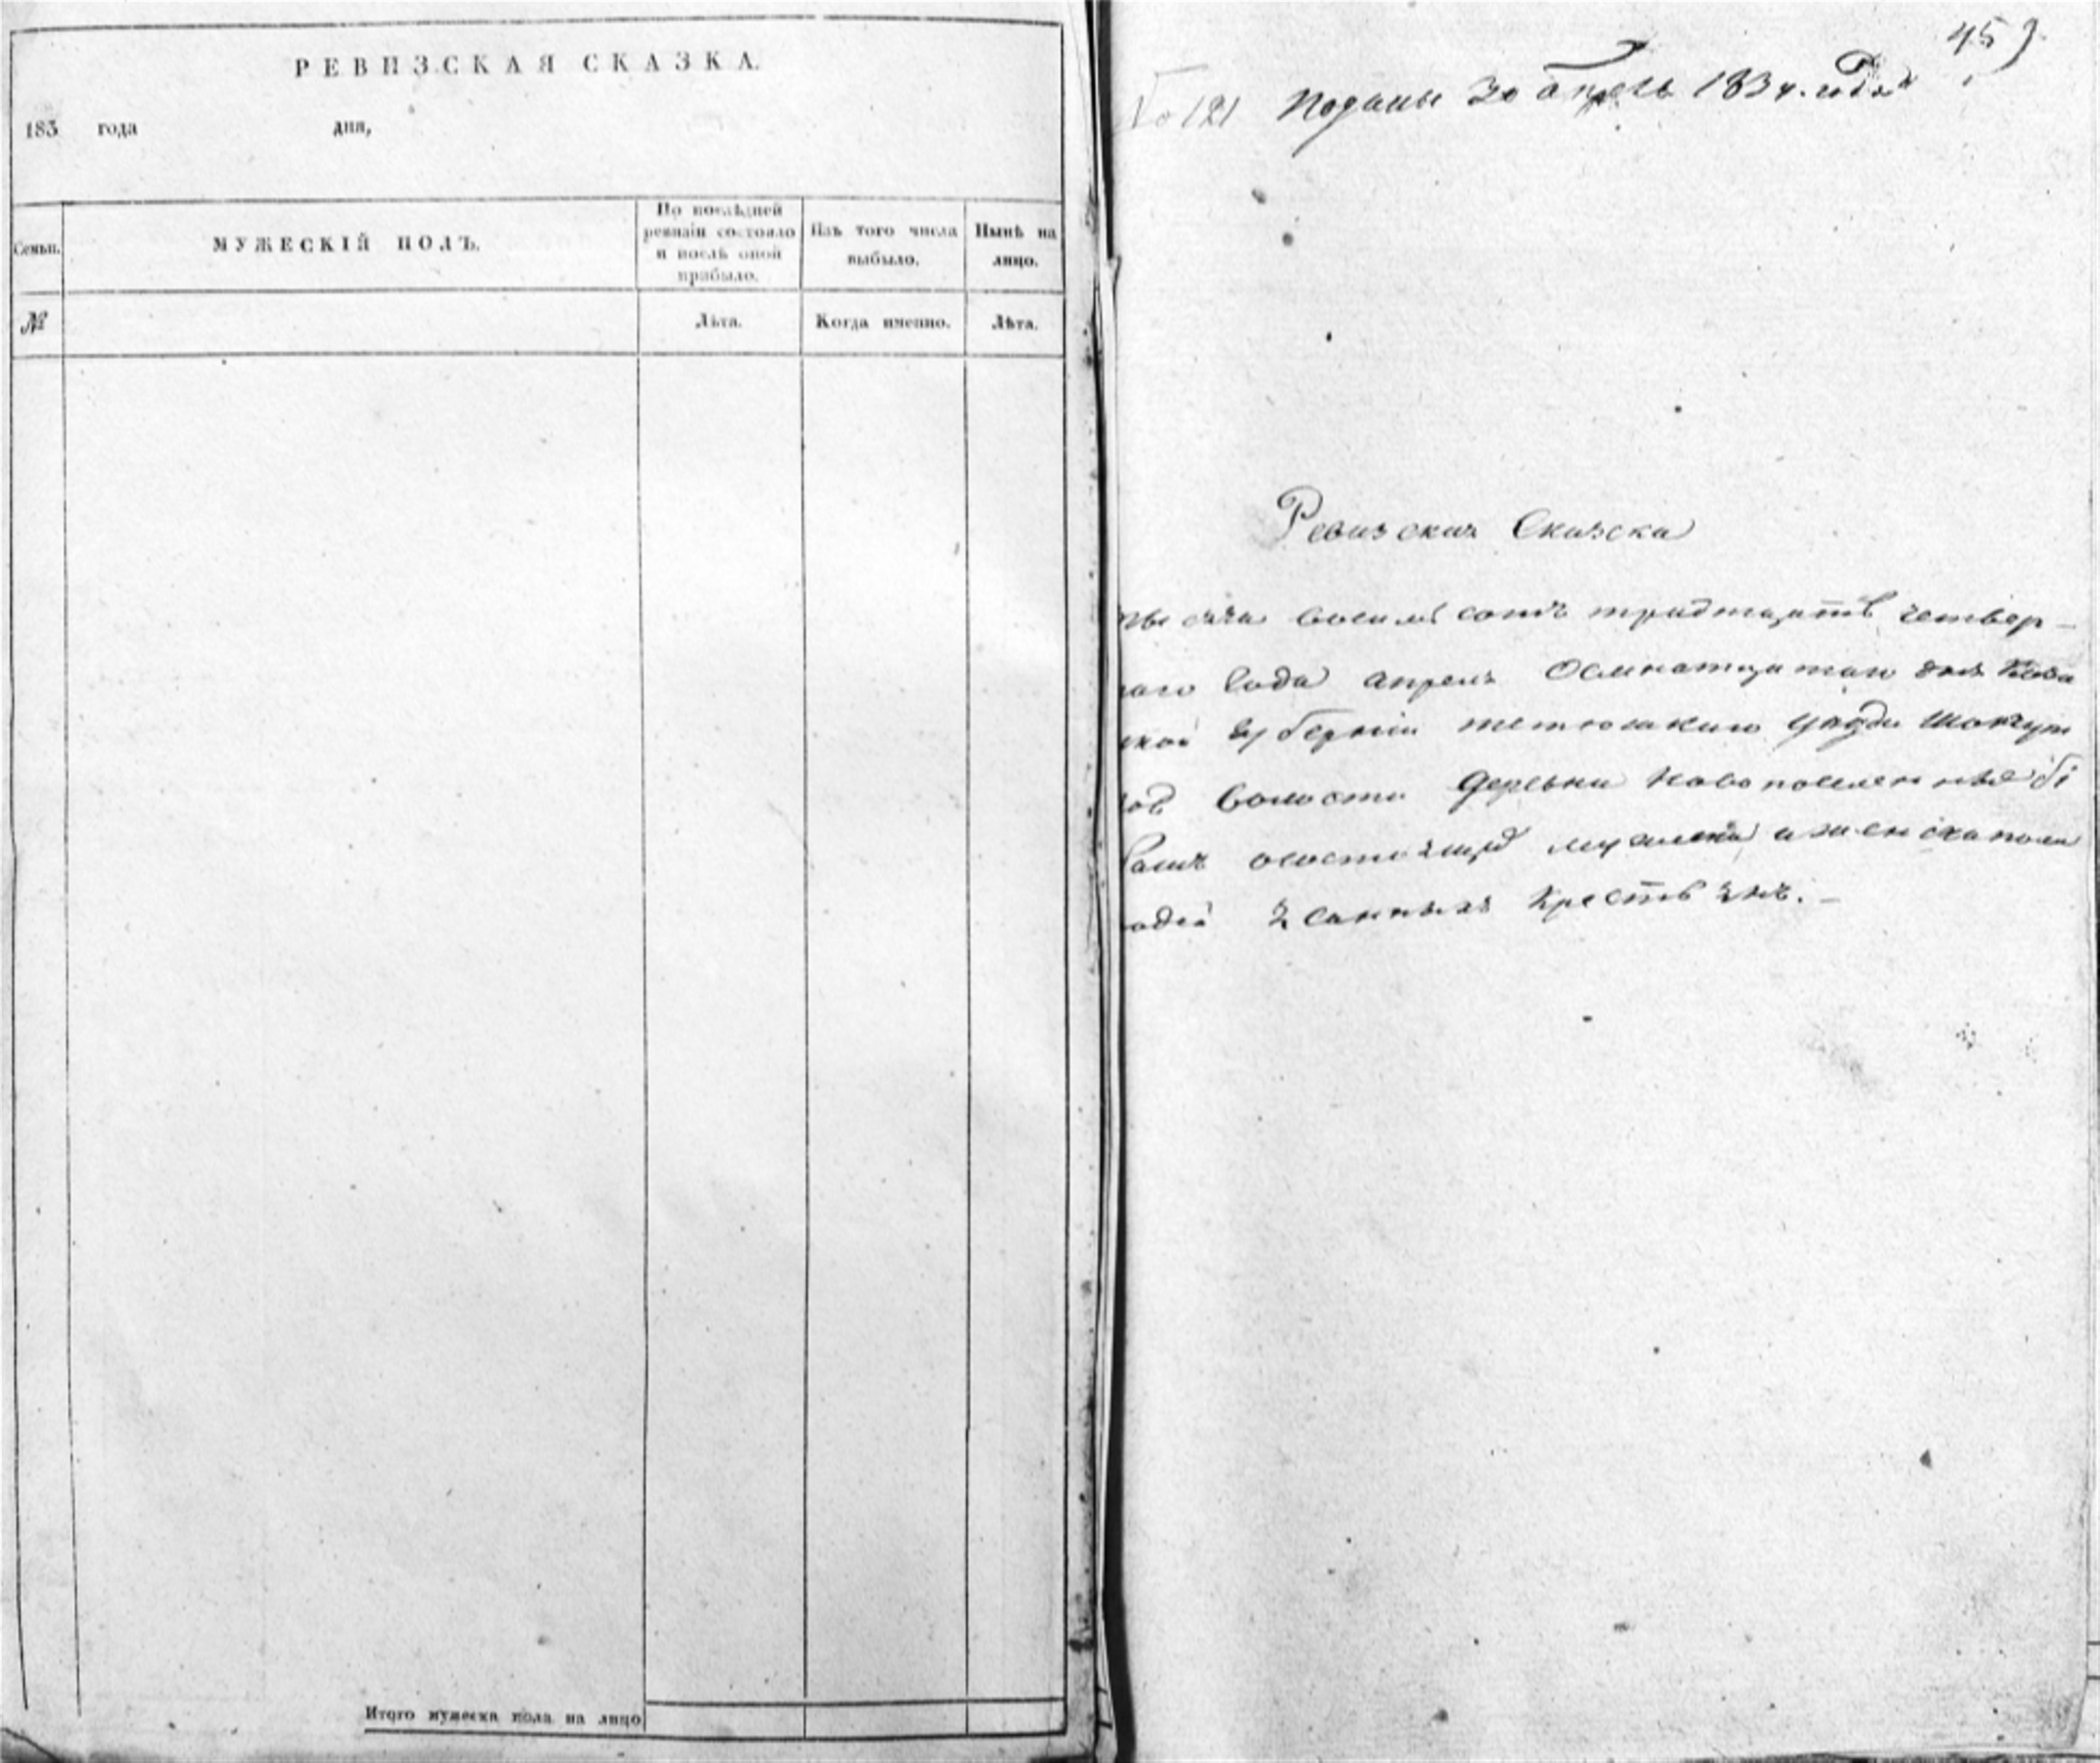 РЕВИЗСКАЯ СКАЗКА.
183 года дня,
Семьи.
МУЖЕСКІЙ ПОЛЪ.
По послѣдней ревизіи состояло и послѣ оной прибыло.
Изъ того числа выбыло.
Нынѣ на лицо.
№
Лѣта.
Когда именно.
Лѣта.
Итого мужеска пола на лицо
459
№ 121 Поданы 30 апрель 1834. года
Ревизская Сказска
тысяча восимъ сотъ тридтцать четвер-
таго года апреля Осмнатцатаго дня Каза
нской губерніи тетюшкаго уезда
волости деревни новопоселенные
мужеска и женска пола
крестьянъ.-